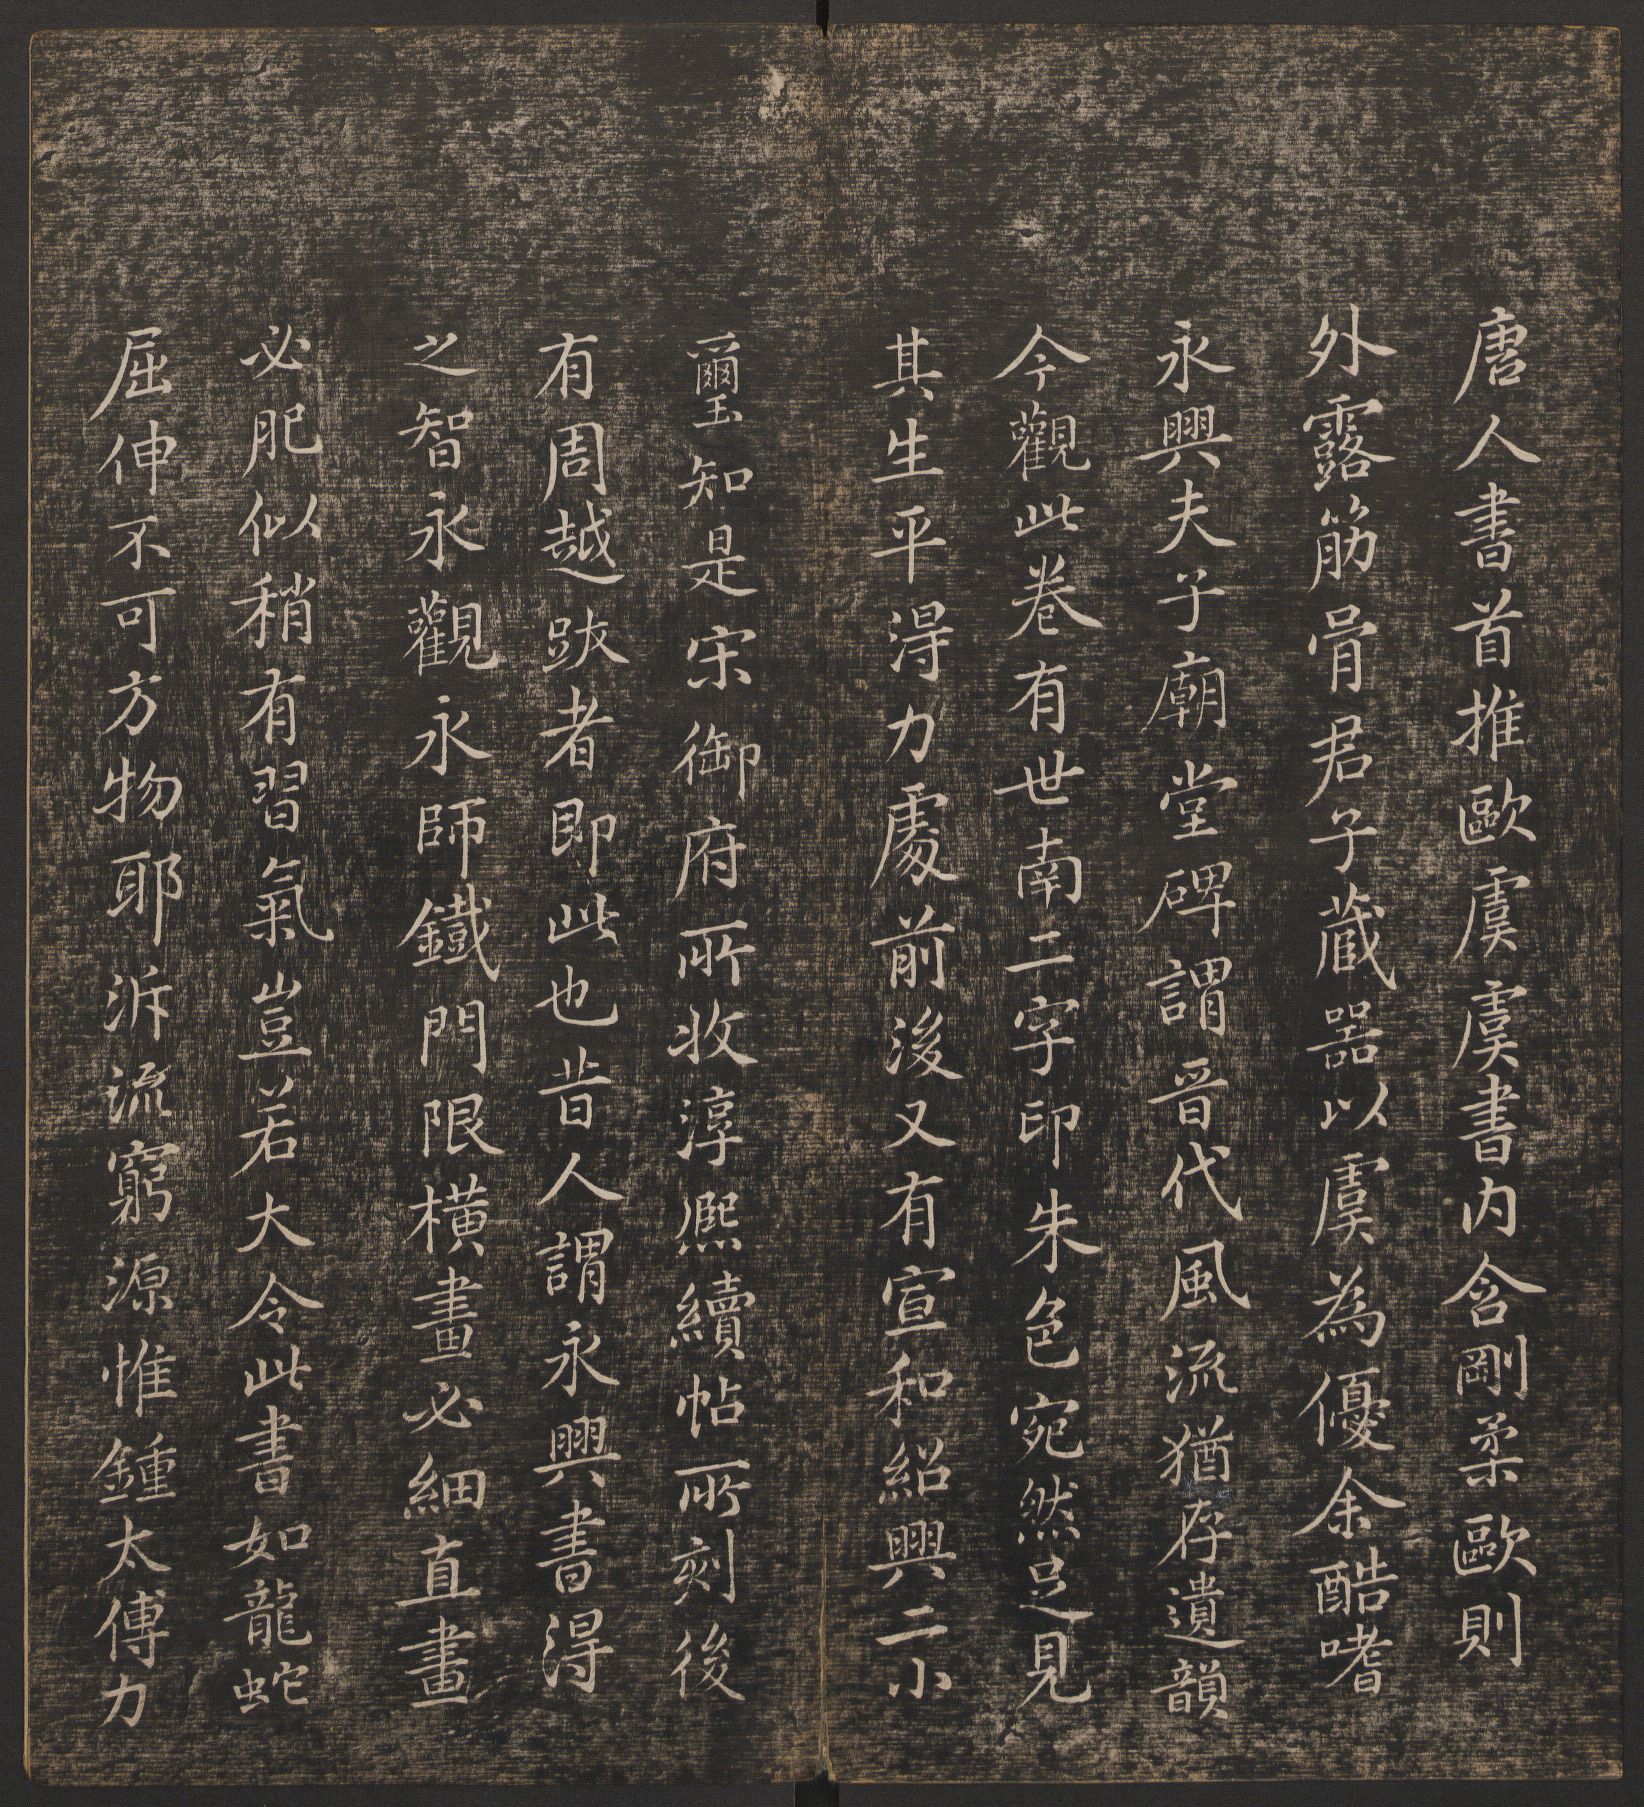 唐人書首推歐虞虞書內含剛柔歐則
外露筋骨君子藏器以虞為優余酷嗜
永興夫子廟堂碑謂晉代風流猶存遺韻
今觀此卷有世南二字印朱色宛然足見
其生平得力處前後又有宣和紹興二小
璽知是宋御府所收淳熙續帖所刻後
有周越跋者即此也昔人謂永興書得
之智永觀永師鐵門限橫畫必細直畫
必肥似稍有習氣豈若大令此書如龍蛇
屈伸不可方物耶泝流窮源惟鍾太傅力